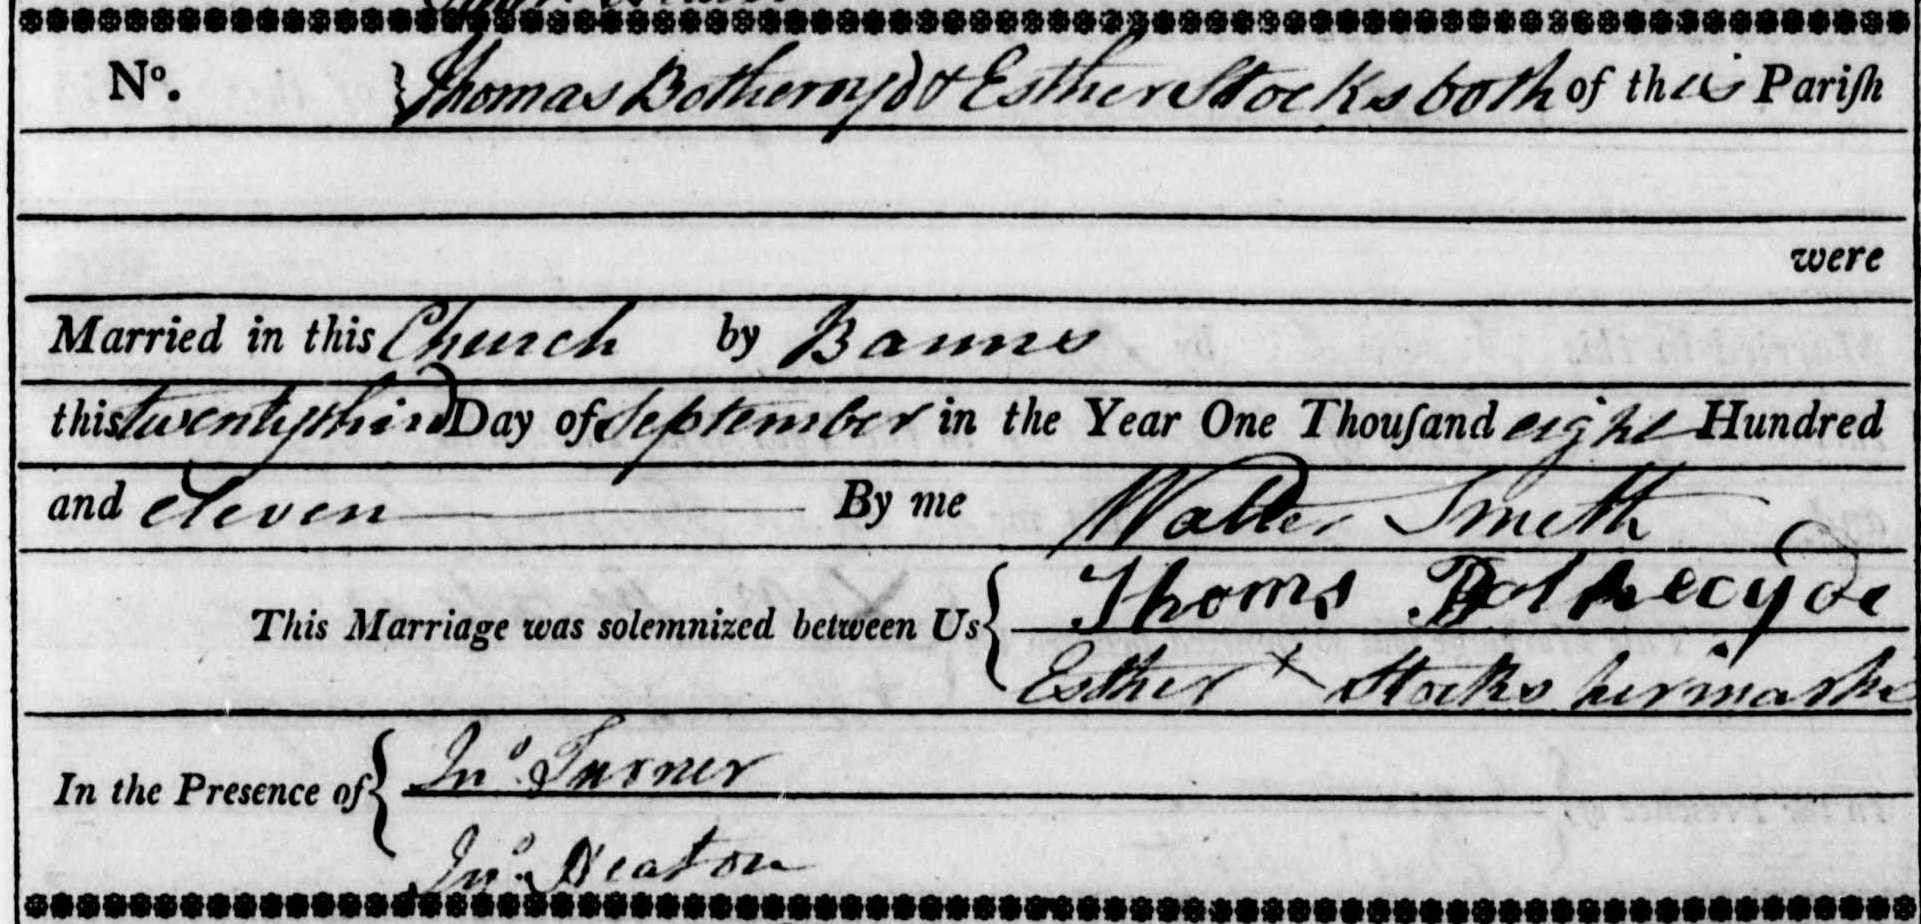 No. Thomas Botheroyd & Esther Stocks both of this Pariſh
were
Married in this Church by Banns
this twentythird Day of September in the Year One Thouſand eight Hundred
and eleven By me Walter Smith
This Marriage was solemnized between Us Thoms Bothecyde
Esther x Stocks her marke
In the Presence of Jno. Turner
Jno. Heaton